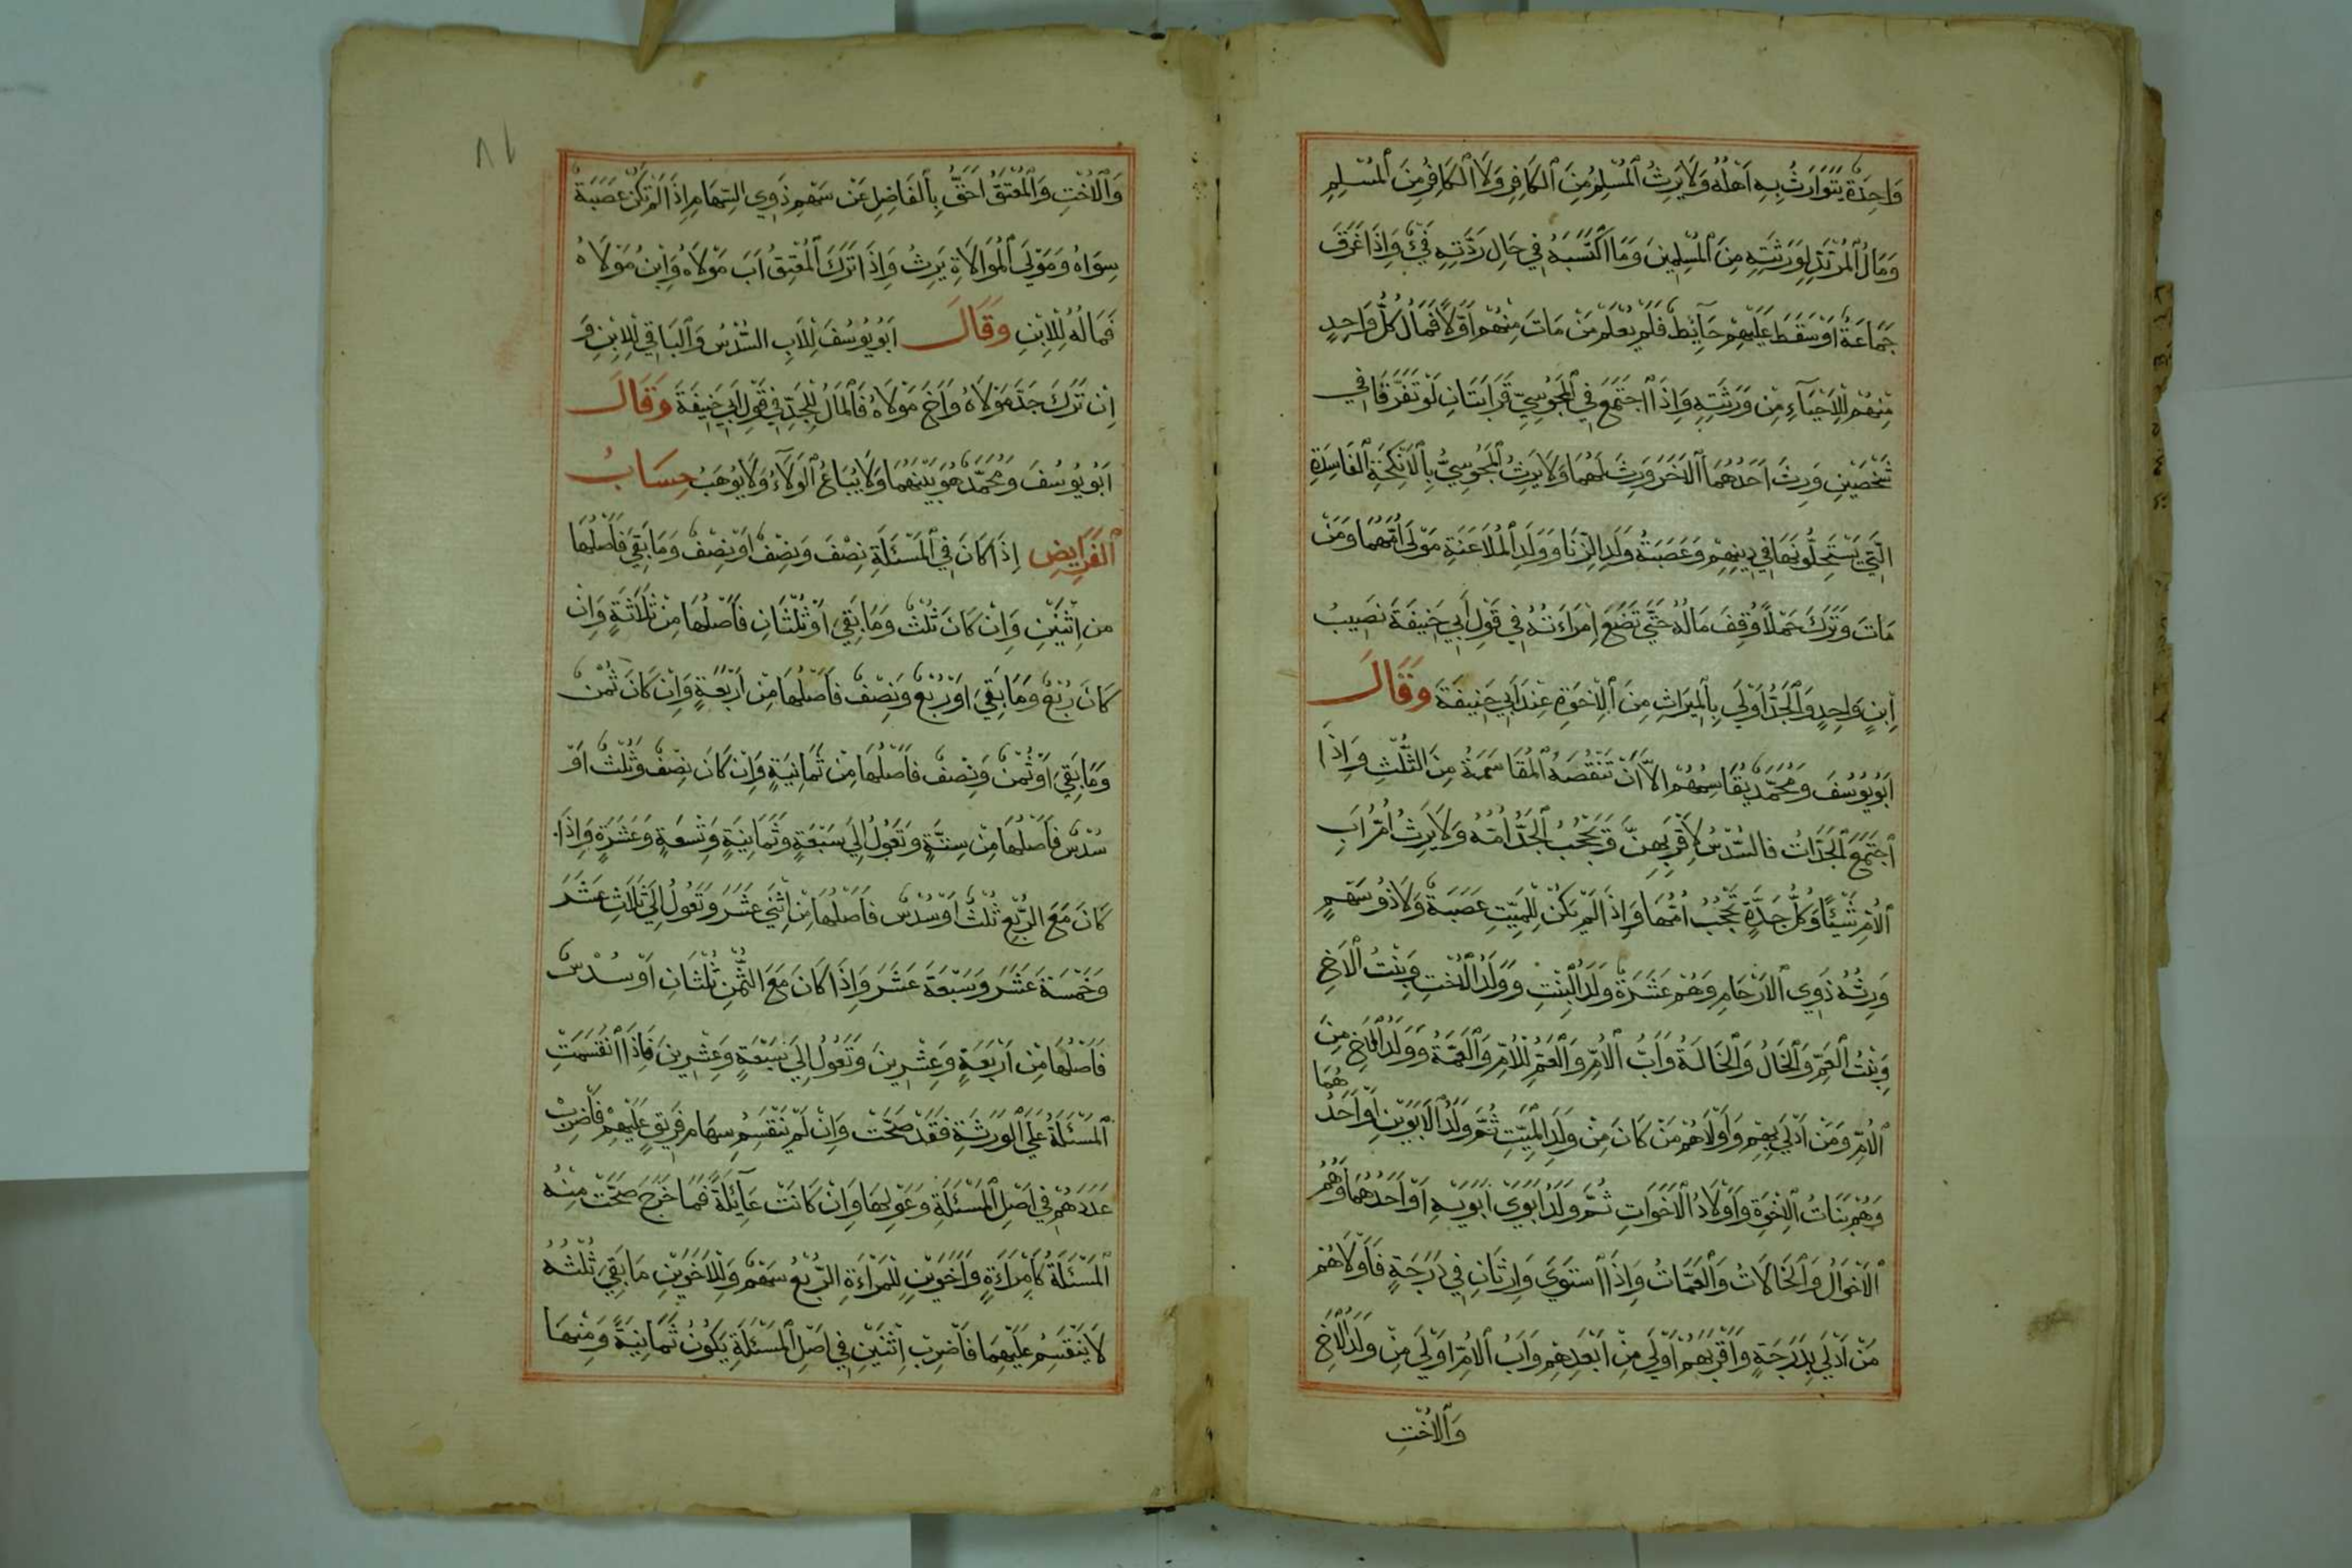 وَاحِدَةٌ يَتَوَارَثُ بِهِ اَهْلُهُ وَلَا يَرِثُ ٱلْمُسْلِمُ مِنَ ٱلْكَافِرِ وَلَا ٱلْكَافِرُ مِنَ ٱلْمُسْلِمِ
وَمَالُ ٱلْمُرْتَدِّ لِوَرَثَتِهِ مِنَ ٱلْمُسْلِمِينَ وَمَا اكْتَسَبَهُ فِي حَالِ رِدَّتِهِ فَيْءٌ وَاِذَا غَرَقَ
جَمَاعَةٌ اَوْ سَقَطَ عَلَيْهِمْ حَآئِطٌ فَلَمْ يُعْلَمْ مَنْ مَاتَ مِنْهُمْ اَوَّلًا فَمَالُ كُلِّ وَاحِدٍ
مِنْهُمْ لِلْاَحْيَآءِ مِنْ وَرَثَتِهِ وَاِذَا اجْتَمَعَ فِي ٱلْمَجُوسِيِّ قَرَابَتَانِ لَوْ تَفَرَّقَا فِي
شَخْصَيْنِ وَرِثَ اَحَدُهُمَا ٱلْاٰخَرَ وَرِثَ لَهُمَا وَلَا يَرِثُ ٱلْمَجُوسِيُّ بِٱلْاَنْكِحَةِ ٱلْفَاسِدَةِ
الَّتِي يَسْتَحِلُّونَهَا فِي دِينِهِمْ وَعَصَبَةُ وَلَدِ الزِّنَا وَوَلَدِ ٱلْمُلَاعَنَةِ مَوْلَى اُمِّهِمَا وَمَنْ
مَاتَ وَتَرَكَ حَمْلًا وُقِفَ مَالُهُ حَتَّي تَضَعَ اِمْرَاَتُهُ فِي قَوْلِ اَبِي حَنِيفَةَ نَصِيبُ
اِبْنٍ وَاحِدٍ وَٱلْجَدُّ اَوْلَي بِٱلْمِيرَاثِ مِنَ ٱلْاِخْوَةِ عِنْدَ اَبِي حَنِيفَةَ وَقَالَ
اَبُو يُوسُفَ وَمُحَمَّدٌ يُقَاسِمُهُمْ اِلَّا اَنْ تَنْقُصَهُ ٱلْمُقَاسَمَةُ مِنَ الثُّلُثِ وَاِذَا
اجْتَمَعَ ٱلْجَدَّاتُ فَالسُّدْسُ لِاَقْرَبِهِنَّ وَيَحْجُبُ ٱلْجَدُّ اُمَّهُ وَلَا يَرِثُ اُمُّ اَبِ
ٱلْاُمِّ شَيْئًا وَكُلُّ جَدَّةٍ تَحْجُبُ اُمَّهَا وَاِذَا لَمْ يَكُنْ لِلْمَيِّتِ عَصَبَةٌ وَلَا ذُو سَهْمٍ
وَرِثَهُ ذَوِي ٱلْاَرْحَامِ وَهُمْ عَشَرَةٌ وَلَدُ ٱلْبِنْتِ وَوَلَدُ ٱلْاُخْتِ وَبِنْتُ ٱلْاَخِ
وَبِنْتُ ٱلْعَمِّ وَٱلْخَالُ وَٱلْخَالَةُ وَاَبُ ٱلْاُمِّ وَٱلْعَمُّ لِلْاُمِّ وَٱلْعَمَّةُ وَوَلَدُ ٱلْاَخِ مِنَ
ٱلْاُمِّ وَمَنْ اَدْلَي بِهِمْ وَاَوْلَاهُمْ مَنْ كَانَ مِنْ وَلَدِ ٱلْمَيِّتِ ثُمَّ وَلَدُ ٱلْاَبَوَيْنِ اَوْ اَحَدُهُمَا
وَهُمْ بَنَاتُ ٱلْاِخْوَةِ وَاَوْلَادُ ٱلْاَخَوَاتِ ثُمَّ وَلَدُ اَبَوَيْ اَبَوَيْهِ اَوْ اَحَدُهُمَا وَهُمُ
ٱلْاَخْوَالُ وَٱلْخَالَاتُ وَٱلْعَمَّاتُ وَاِذَا اسْتَوَيَ وَارِثَانِ فِي دَرَجَةٍ فَاَوْلَاهُمْ
مَنْ اَدْلَي بِدَرَجَةٍ وَاَقْرَبُهُمْ اَوْلَى مِنْ اَبْعَدِهِمْ وَاَبُ ٱلْاُمِّ اَوْلَى مِنْ وَلَدِ ٱلْاَخِ
وَٱلْاُخْتِ
٨١
وَٱلْاُخْتِ وَٱلْمُعْتِقُ اَحَقُّ بِٱلْفَاضِلِ عَنْ سَهْمِ ذَوِي السِّهَامِ اِذَا لَمْ تَكُنْ عَصَبَةٌ
سِوَاهُ وَمَوْلَي ٱلْمُوَالَاةِ يَرِثُ وَاِذَا تَرَكَ ٱلْمُعْتِقُ اَبَ مَوْلَاهُ وَابْنَ مَوْلَاهُ
فَمَالُهُ لِلْاِبْنِ وَقَالَ اَبُو يُوسُفَ لِلْاَبِ السُّدْسُ وَٱلْبَاقِي لِلْاِبْنِ وَ
اِنْ تَرَكَ جَدَّ مَوْلَاهُ وَاَخَ مَوْلَاهُ فَٱلْمَالُ لِلْجَدِّ فِي قَوْلِ اَبِي حَنِيفَةَ وَقَالَ
اَبُو يُوسُفَ وَمُحَمَّدٌ هُوَ بَيْنَهُمَا وَلَا يُبَاعُ ٱلْوَلَآءُ وَلَا يُوهَبُ حِسَابُ
ٱلْفَرَايِضِ اِذَا كَانَ فِي ٱلْمَسْئَلَةِ نِصْفٌ وَنِصْفٌ اَوْ نِصْفٌ وَمَا بَقِيَ فَاَصْلُهَا
مِنْ اِثْنَيْنِ وَاِنْ كَانَ ثُلُثٌ وَمَا بَقِيَ اَوْ ثُلُثَانِ فَاَصْلُهَا مِنْ ثَلَاثَةٍ وَاِنْ
كَانَ رُبْعٌ وَمَا بَقِيَ اَوْ رُبْعٌ وَنِصْفٌ فَاَصْلُهَا مِنْ اَرْبَعَةٍ وَاِنْ كَانَ ثُمْنٌ
وَمَا بَقِيَ اَوْ ثُمْنٌ وَنِصْفٌ فَاَصْلُهَا مِنْ ثَمَانِيَةٍ وَاِنْ كَانَ نِصْفٌ وَثُلُثٌ اَوْ
سُدْسٌ فَاَصْلُهَا مِنْ سِتَّةٍ وَتَعُولُ اِلَي سَبْعَةٍ وَثَمَانِيَةٍ وَتِسْعَةٍ وَعَشَرَةٍ وَاِذَا
كَانَ مَعَ الرُّبْعِ ثُلُثٌ اَوْ سُدْسٌ فَاَصْلُهَا مِنْ اِثْنَي عَشَرَ وَتَعُولُ اِلَي ثَلَاثَ عَشَرَ
وَخَمْسَةَ عَشَرَ وَسَبْعَةَ عَشَرَ وَاِذَا كَانَ مَعَ الثُّمْنِ ثُلُثَانِ اَوْ سُدْسٌ
فَاَصْلُهَا مِنْ اَرْبَعَةٍ وَعِشْرِينَ وَتَعُولُ اِلَي سَبْعَةٍ وَعِشْرِينَ فَاِذَا انْقَسَمَتِ
ٱلْمَسْئَلَةُ عَلَي ٱلْوَرَثَةِ فَقَدْ صَحَّتْ وَاِنْ لَمْ تَنْقَسِمْ سِهَامُ فَرِيقٍ عَلَيْهِمْ فَاضْرِبْ
عَدَدَهُمْ فِي اَصْلِ ٱلْمَسْئَلَةِ وَعَوْلِهَا وَاِنْ كَانَتْ عَآئِلَةً فَمَا خَرَجَ صَحَّتْ مِنْهُ
ٱلْمَسْئَلَةُ كَامْرَاَةٍ وَاَخَوَيْنِ لِلْمَرْاَةِ الرُّبْعُ سَهْمٌ وَلِلْاَخَوَيْنِ مَا بَقِيَ ثُلُثُهُ
لَا يَنْقَسِمُ عَلَيْهِمَا فَاضْرِبْ اِثْنَيْنِ فِي اَصْلِ ٱلْمَسْئَلَةِ يَكُونُ ثَمَانِيَةً وَمِنْهَا